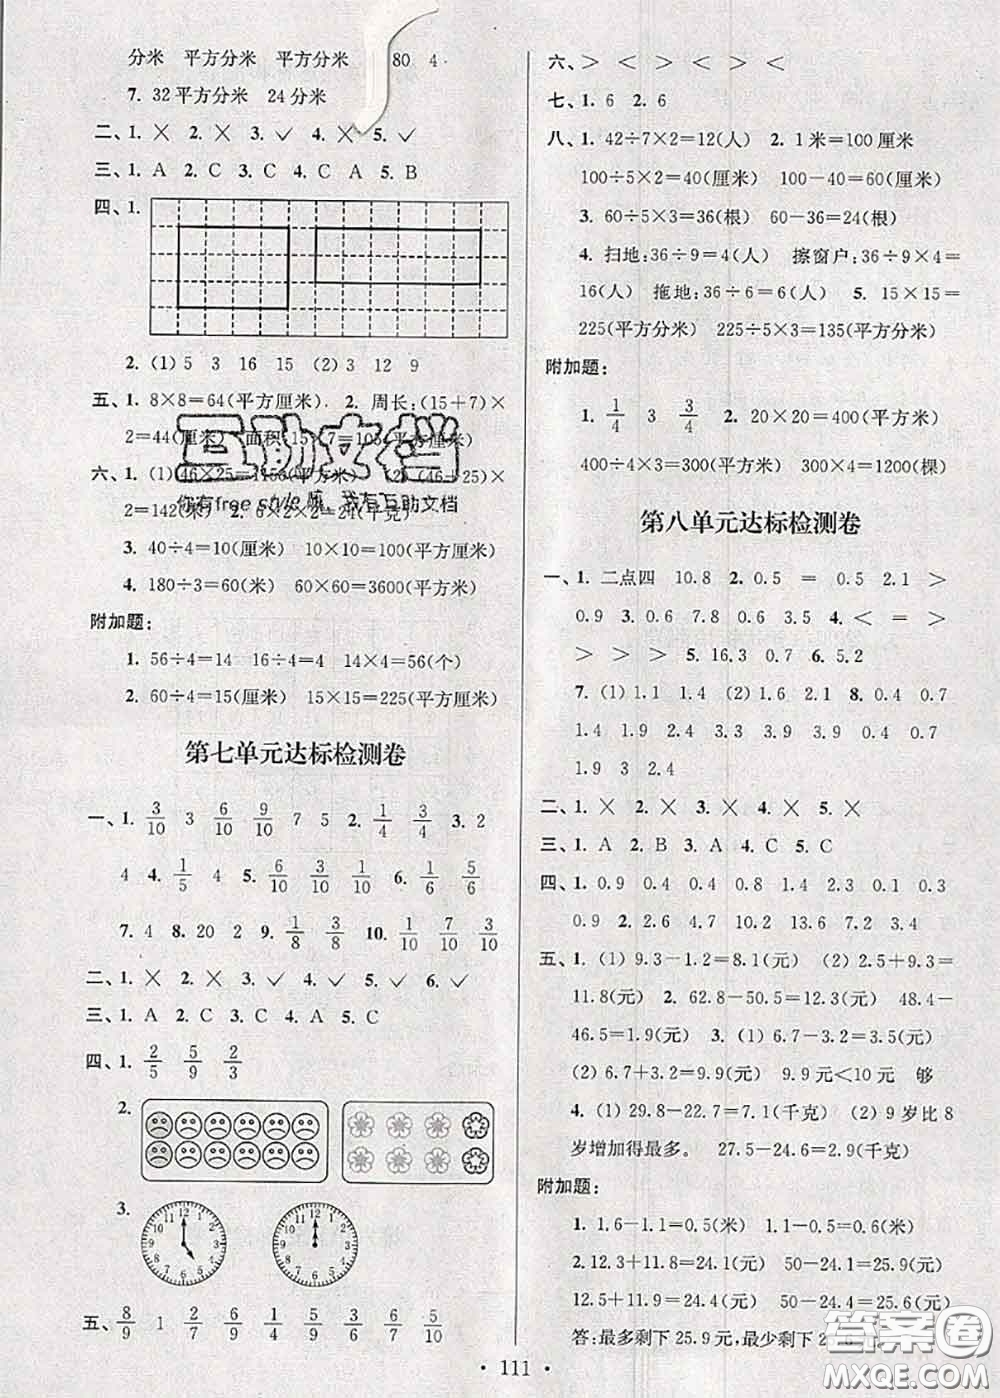 分米 平方分米 平方分米 80 4
7. 32平方分米 24分米
二、1. × 2. × 3. ✓ 4. × 5. ✓
三、1. A 2. C 3. C 4. C A 5. B
四、1.
2. (1) 5 3 16 15 (2) 3 12 9
五、1. 8×8=64(平方厘米) 2. 周长:(15+7)×
2=44(厘米) 面积:15×7=105(平方厘米)
六、1. (1) 46×25=1150(平方米) (2) (46+25)×
2=142(米) 2. 6×2×2=24(千克)
3. 40÷4=10(厘米) 10×10=100(平方厘米)
4. 180÷3=60(米) 60×60=3600(平方米)
附加题:
1. 56÷4=14 16÷4=4 14×4=56(个)
2. 60÷4=15(厘米) 15×15=225(平方厘米)
第七单元达标检测卷
一、1. 3/10 3 6/10 9/10 7 5 2. 1/4 3/4 3. 2
4 4. 1/5 4 5. 6/10 3/10 1/10 6. 1/6 5/6
7. 4 8. 20 2 9. 1/8 3/8 10. 1/10 7/10 3/10
二、1. × 2. × 3. ✓ 4. ✓ 5. ✓ 6. ✓
三、1. A 2. C 3. C 4. A 5. C
四、1. 2/5 5/9 2/3
2.
3.
11 12 1 10 2 9 3 8 4 7 6 5
11 12 1 10 2 9 3 8 4 7 6 5
五、8/9 1 2/7 6/9 6/6 5/8 6/7 7/10
六、> < > < > <
七、1. 6 2. 6
八、1. 42÷7×2=12(人) 2. 1米=100厘米
100÷5×2=40(厘米) 100-40=60(厘米)
3. 60÷5×3=36(根) 60-36=24(根)
4. 扫地:36÷9=4(人) 擦窗户:36÷9×4=
16(人) 拖地:36÷6=6(人) 5. 15×15=
225(平方分米) 225÷5×3=135(平方分米)
附加题:
1. 1/4 3 3/4 2. 20×20=400(平方米)
400÷4×3=300(平方米) 300×4=1200(棵)
第八单元达标检测卷
一、1. 二点四 10.8 2. 0.5 = 0.5 2.1 >
0.9 3. 0.6 7.8 0.6 3.5 4. < = >
> > > 5. 16.3 0.7 6. 5.2
7. (1) 1.1 1.4 (2) 1.6 1.2 8. 0.4 0.7
1.4 1.9 2.3 0.7 0.4 0.6 0.7
1.9 3 2.4
二、1. × 2. × 3. × 4. × 5. ×
三、1. A 2. B 3. A 4. C 5. C
四、1. 0.9 0.4 0.4 2.3 0.1 0.3
0.9 2. 2.6 4.7 10.2 13.6 7.4 3.4
五、1. (1) 9.3-1.2=8.1(元) (2) 2.5+9.3=
11.8(元) 2. 62.8-50.5=12.3(元) 48.4-
46.5=1.9(元) 3. (1) 6.7-3.2=3.5(元)
(2) 6.7+3.2=9.9(元) 9.9元<10元 够
4. (1) 29.8-22.7=7.1(千克) (2) 9岁比8
岁增加得最多。 27.5-24.6=2.9(千克)
附加题:
1. 1.6-1.1=0.5(米) 1.1-0.5=0.6(米)
2. 12.3+11.8=24.1(元) 50-24.1=25.9(元)
12.5+11.9=24.4(元) 50-24.4=25.6(元)
答:最多剩下25.9元,最少剩下
• 111 •
互助文档
你有free style 嘛, 我有互助文档
答案圈
MXQE.COM